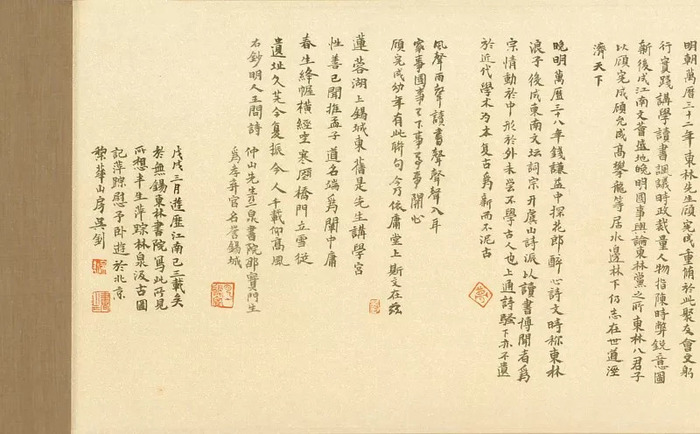 明朝萬曆三十二年東林先生顧宪成重脩於此聚友會文躬
行實踐講學讀書諷議時政裁量人物指陳時弊銳意圖
新後成江南文薈盛地晚明國事輿論東林黨之所東林八君子
以顧宪成顧允成高攀龍等居水邊林下仍志在世道
濟天下
晚明萬曆三十八年錢謙益中探花郎醉心詩文時称東林
浪子後成東南文坛詞宗开虞山詩派以讀書博聞者爲
宗情動於中形於外未嘗不學古人也上通詩騷下亦不遺
於近代學术爲本复古爲新而不泥古
風聲雨聲讀書聲聲聲入耳
家事國事天下事事事關心
顧宪成幼年有此聯句今乃依庸堂上斯文在兹
蓮蓉湖上錫城東舊是先生講學宮
性善已聞推孟子道名端爲闡中庸
春生絳帳橫經坐寒橋門立雪從
遺址久芜今复振令人千載仰高風
右鈔明人王問詩
仲山先生二泉書院邵寶門生
爲孝弃官名譽錫城
戊戌三月遊歷江南已三載矣
於無錫東林書院寫此所見
所想半生萍踪林泉汲古圖
記萍踪慰予卧遊於北京
黎華山房吳釗